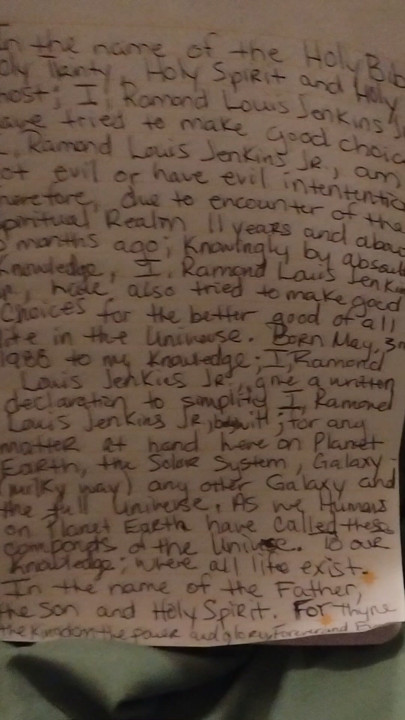 In the name of the Holy Bib
oly Trinty, Holy Spirit and Holy
host; I, Ramond Louis Jenkins J
ave tried to make good choic
I, Ramond Louis Jenkins Jr., am
ot evil or have evil intententio
herefore, due to encounter of the
piritual Realm 11 years and abou
months ago; knowingly by absolu
Knowledge, I, Ramond Louis Jenkin
Jr, have also tried to make good
Choices for the better good of all
life in the Universe. Born May, 3r
1986 to my Knowledge; I, Ramond
Louis Jenkins Jr., give a written
declaration to simplify I, Ramond
Louis Jenkins Jr, ; for any
matter at hand here on Planet
Earth, the Solar System, Galaxy
(milky way) any other Galaxy and
the full Universe. As we Humans
on Planet Earth have called these
componts of the Universe. To our
Knowledge; where all life exist.
In the name of the Father,
the Son and Holy Spirit. For thyne
the Kingdom the power and glory Forever and